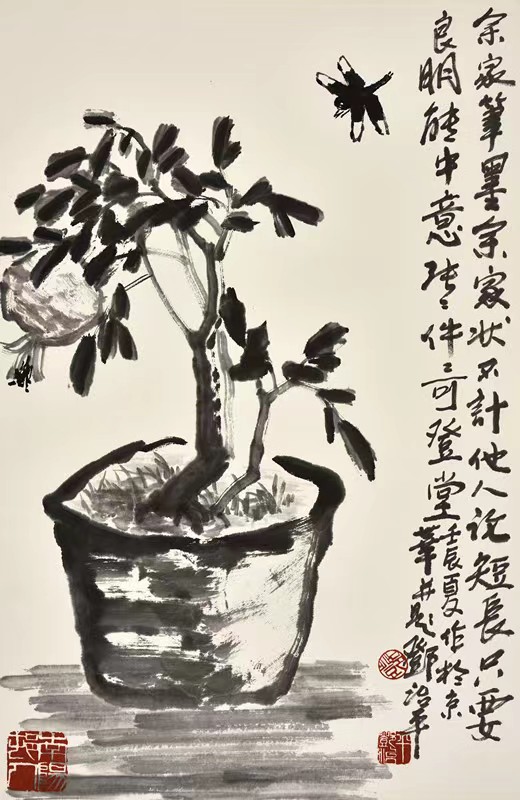 余家筆墨余家狀不計他人说短長只要
良朋能中意張〻件〻可登堂
壬辰夏作於京
華并題鄧治